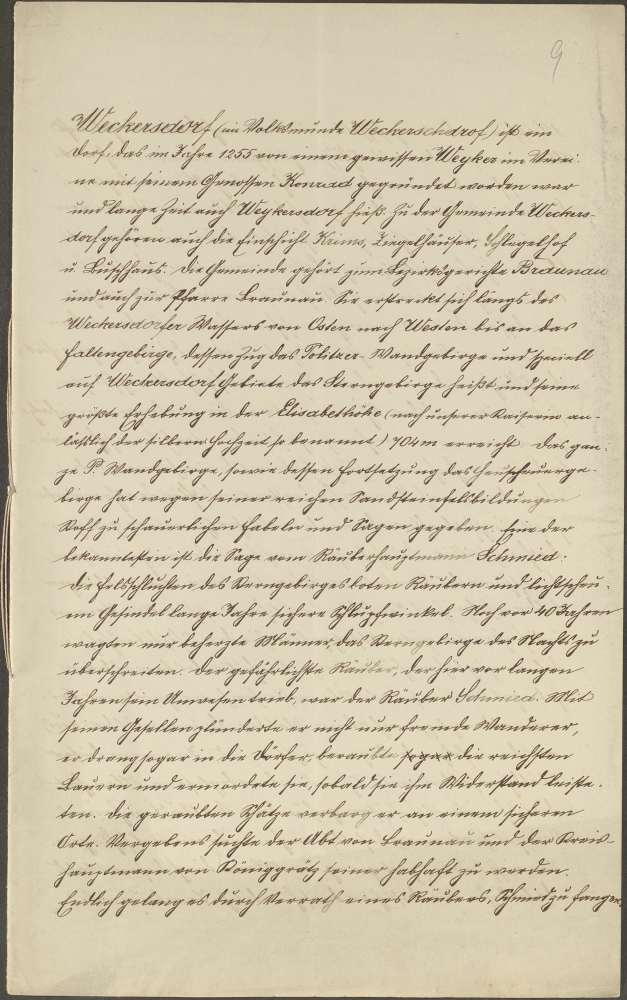 9
Weckersdorf (im Volksmunde Weckerschdrof) ist ein
Dorf, das im Jahre 1255 von einem gewissen Weyker im Verei-
ne mit seinem Genossen Konrad gegründet worden war
und lange Zeit auch Weykersdorf hieß. Zu der Gemeinde Weckers-
dorf gehören auch die Einschicht Krims, Ziegelhäuser, Schlegelhof
u. Buschhaus. Die Gemeinde gehört zum Bezirksgerichte Braunau
und auch zur Pfarre Braunau. Sie erstreckt sich längs des
Weckersdorfer Wassers von Osten nach Westen bis an das
Faltengebirge, dessen Zug das Politzer-Wandgebirge und speciell
auf Weckersdorf Gebiete das Sterngebirge heißt und seine
größte Erhebung in der Elisabethöhe (nach unserer Kaiserin an-
läßlich der silbern Hochzeit so benannt) 704 m erreicht. Das gan-
ze P. Wandgebirge, sowie dessen Fortsetzung das Heuscheuerge-
birge hat wegen seiner reichen Sandsteinfelsbildungen
Stoff zu schauerlichen Fabeln und Sagen gegeben. Eine der
bekanntesten ist die Sage vom Räuberhauptmann Schmied:
Die Felsschluchten des Sterngebirges boten Räubern und lichtscheu-
em Gesindel lange Jahre sichere Schlupfwinkel. Noch vor 40 Jahren
wagten nur beherzte Männer, das Sterngebirge des Nachts zu
überschreiten. Der gefährlichste Räuber, der hier vor langen
Jahren sein Unwesen trieb, war der Räuber Schmied. Mit
seinen Gesellen plünderte er nicht nur fremde Wanderer,
er drang sogar in die Dörfer, beraubte sogar die reichsten
Bauern und ermordete sie, sobald sie ihm Widerstand leiste-
ten. Die geraubten Schätze verbarg er an einem sicheren
Orte. Vergebens suchte der Abt von Braunau und der Kreis-
hauptmann von Königgrätz seiner habhaft zu werden.
Endlich gelang es durch Verrath eines Räubers, Schmied zu fangen.